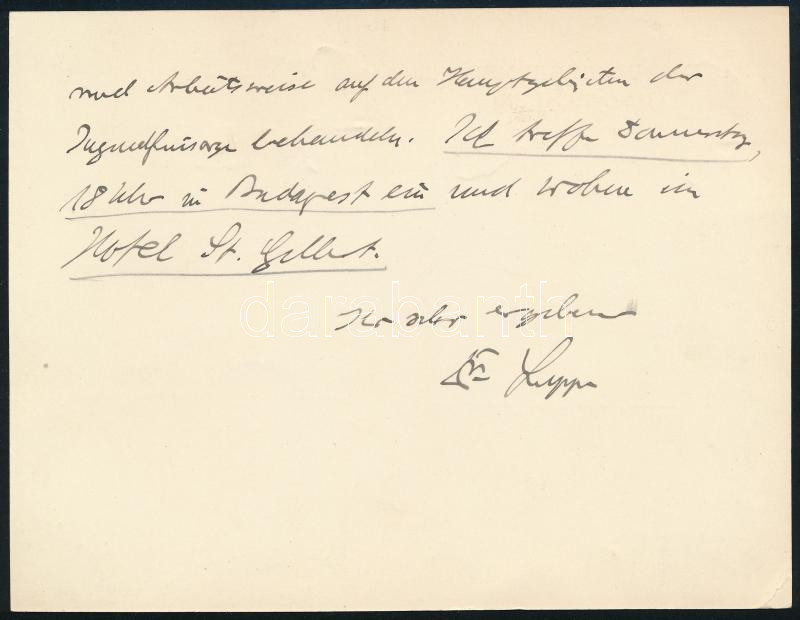 und Arbeitsweise auf den Hauptgebieten der
Jugendfürsorge behandeln. Ich treffe Donnerstag,
18 Uhr in Budapest ein und wohne im
Hotel St. Gellert.
darabanth
Ihr sehr ergebener
Dr Luppe